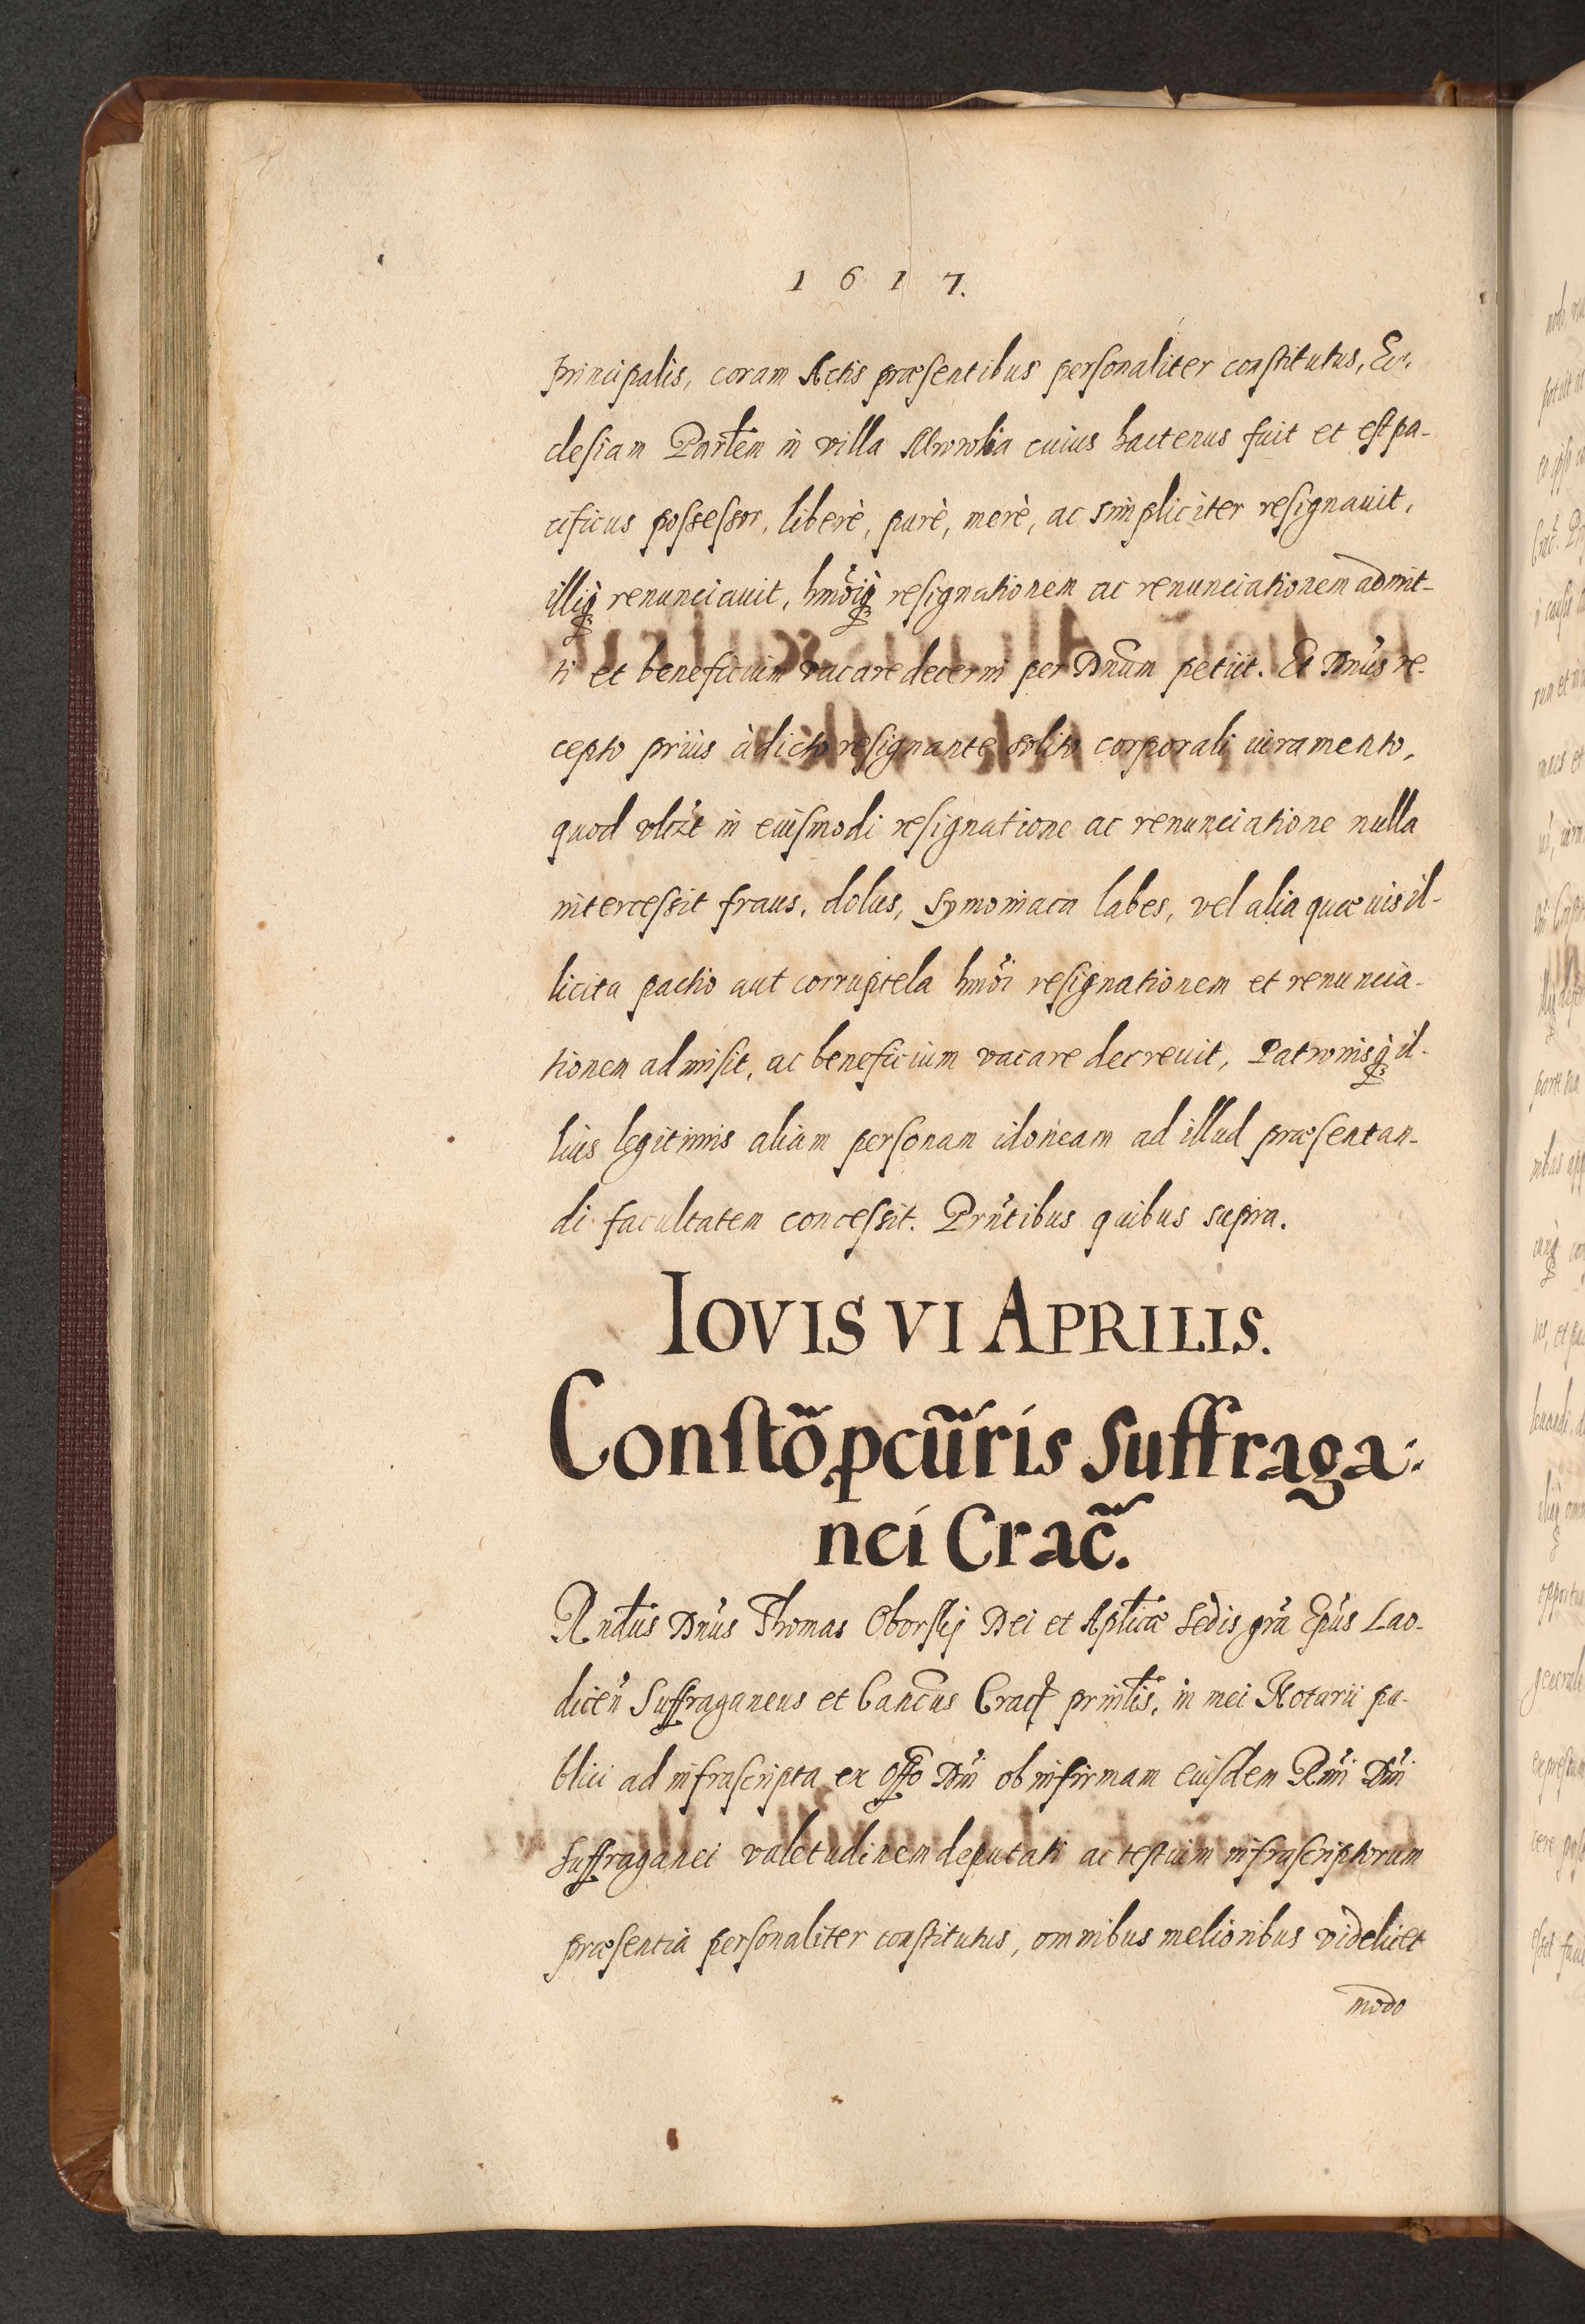 1617.
principalis, coram Actis præsentibus personaliter constitutus, Ec-
clesiam Parlẽm in villa Mrowla cuius hactenus fuit et est pa-
cificus possessor, liberè, purè, merè, ac simpliciter resignauit,
illiq₃ renunciauit, hmõiq₃ resignationem ac renunciationem admit-
ti et beneficium vacare decerni per Dnũm petiit. Et Dnus re-
cepto priùs à dicto resignante solito corporali iuramento,
quod vidzt in eiusmodi resignatione ac renunciatione nulla
intercessit fraus, dolus, symoniaca labes, vel alia quæuis il-
licita pactio aut corruptela hmõi resignationem et renuncia-
tionem admisit, ac beneficium vacare decreuit, Patronisq₃ il-
lius legitimis aliam personam idoneam ad illud præsentan-
di facultatem concessit. Prñtibus quibus supra.
IOVIS VI APRILIS.
Constõ pcũris Suffraga-
nei Crac̃.
Rndũs Dnũs Thomas Oborskj Dei et Aplicæ Sedis grã Epũs Lao-
diceñ Suffraganeus et Cancũs Crac̃ prñtis, in mei Notarii pu-
blici ad infrascripta ex offo Dñi ob infirmam eiusdem Rmi Dñi
Suffraganei valetudinem deputati ac testium infrascriptorum
præsentia personaliter constitutus, omnibus melioribus videlicet
modo